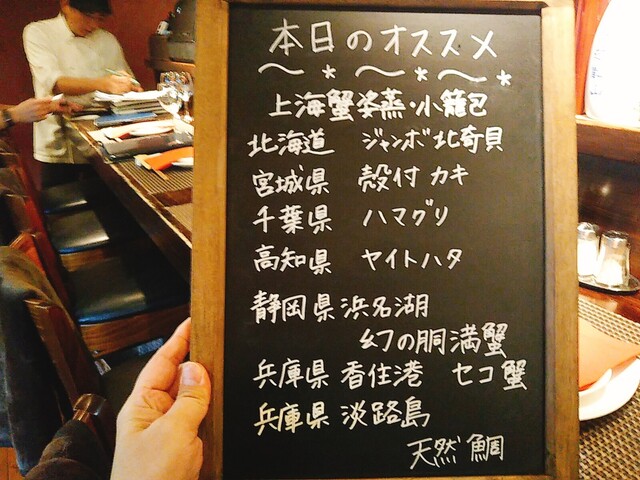 本日のオススメ
上海蟹姿蒸・小籠包
北海道 ジャンボ北奇貝
宮城県 殻付カキ
千葉県 ハマグリ
高知県 ヤイトハタ
静岡県浜名湖
幻の胴満蟹
兵庫県 香住港 セコ蟹
兵庫県 淡路島
天然鯛